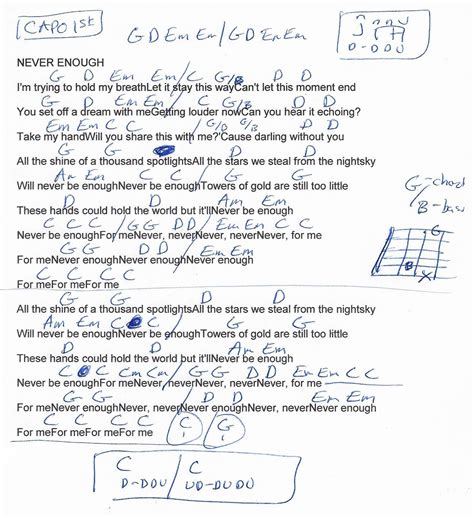 CAPO 1st
G D Em Em / G D Em Em
D-DOU
NEVER ENOUGH
G D Em Em / C G/B D D
I'm trying to hold my breathLet it stay this wayCan't let this moment end
G D Em Em / C C G/B D D
You set off a dream with meGetting louder nowCan you hear it echoing?
Em Em C C / G/B G/B D D
Take my handWill you share this with me?'Cause darling without you
G G D D
All the shine of a thousand spotlightsAll the stars we steal from the nightsky
Am Em C C / G G
Will never be enoughNever be enoughTowers of gold are still too little
D D Am Em
These hands could hold the world but it'llNever be enough
C C C / G G D D / Em Em C C
Never be enoughFor meNever, neverNever, neverNever, for me
G G D D Em Em
For meNever enoughNever enoughNever enough
C C C C
For meFor meFor me
G - chord
B - bass
G
B
X
G G D D
All the shine of a thousand spotlightsAll the stars we steal from the nightsky
Am Em C C / G G
Will never be enoughNever be enoughTowers of gold are still too little
D D Am Em
These hands could hold the world but it'llNever be enough
C C Cm Cm / G G D D Em Em C C
Never be enoughFor meNever, neverNever, neverNever, for me
G G D D Em Em
For meNever enoughNever, neverNever enoughNever, neverNever enough
C C C C C G
For meFor meFor meFor me
C / C
D-DOU / UD-DUDU